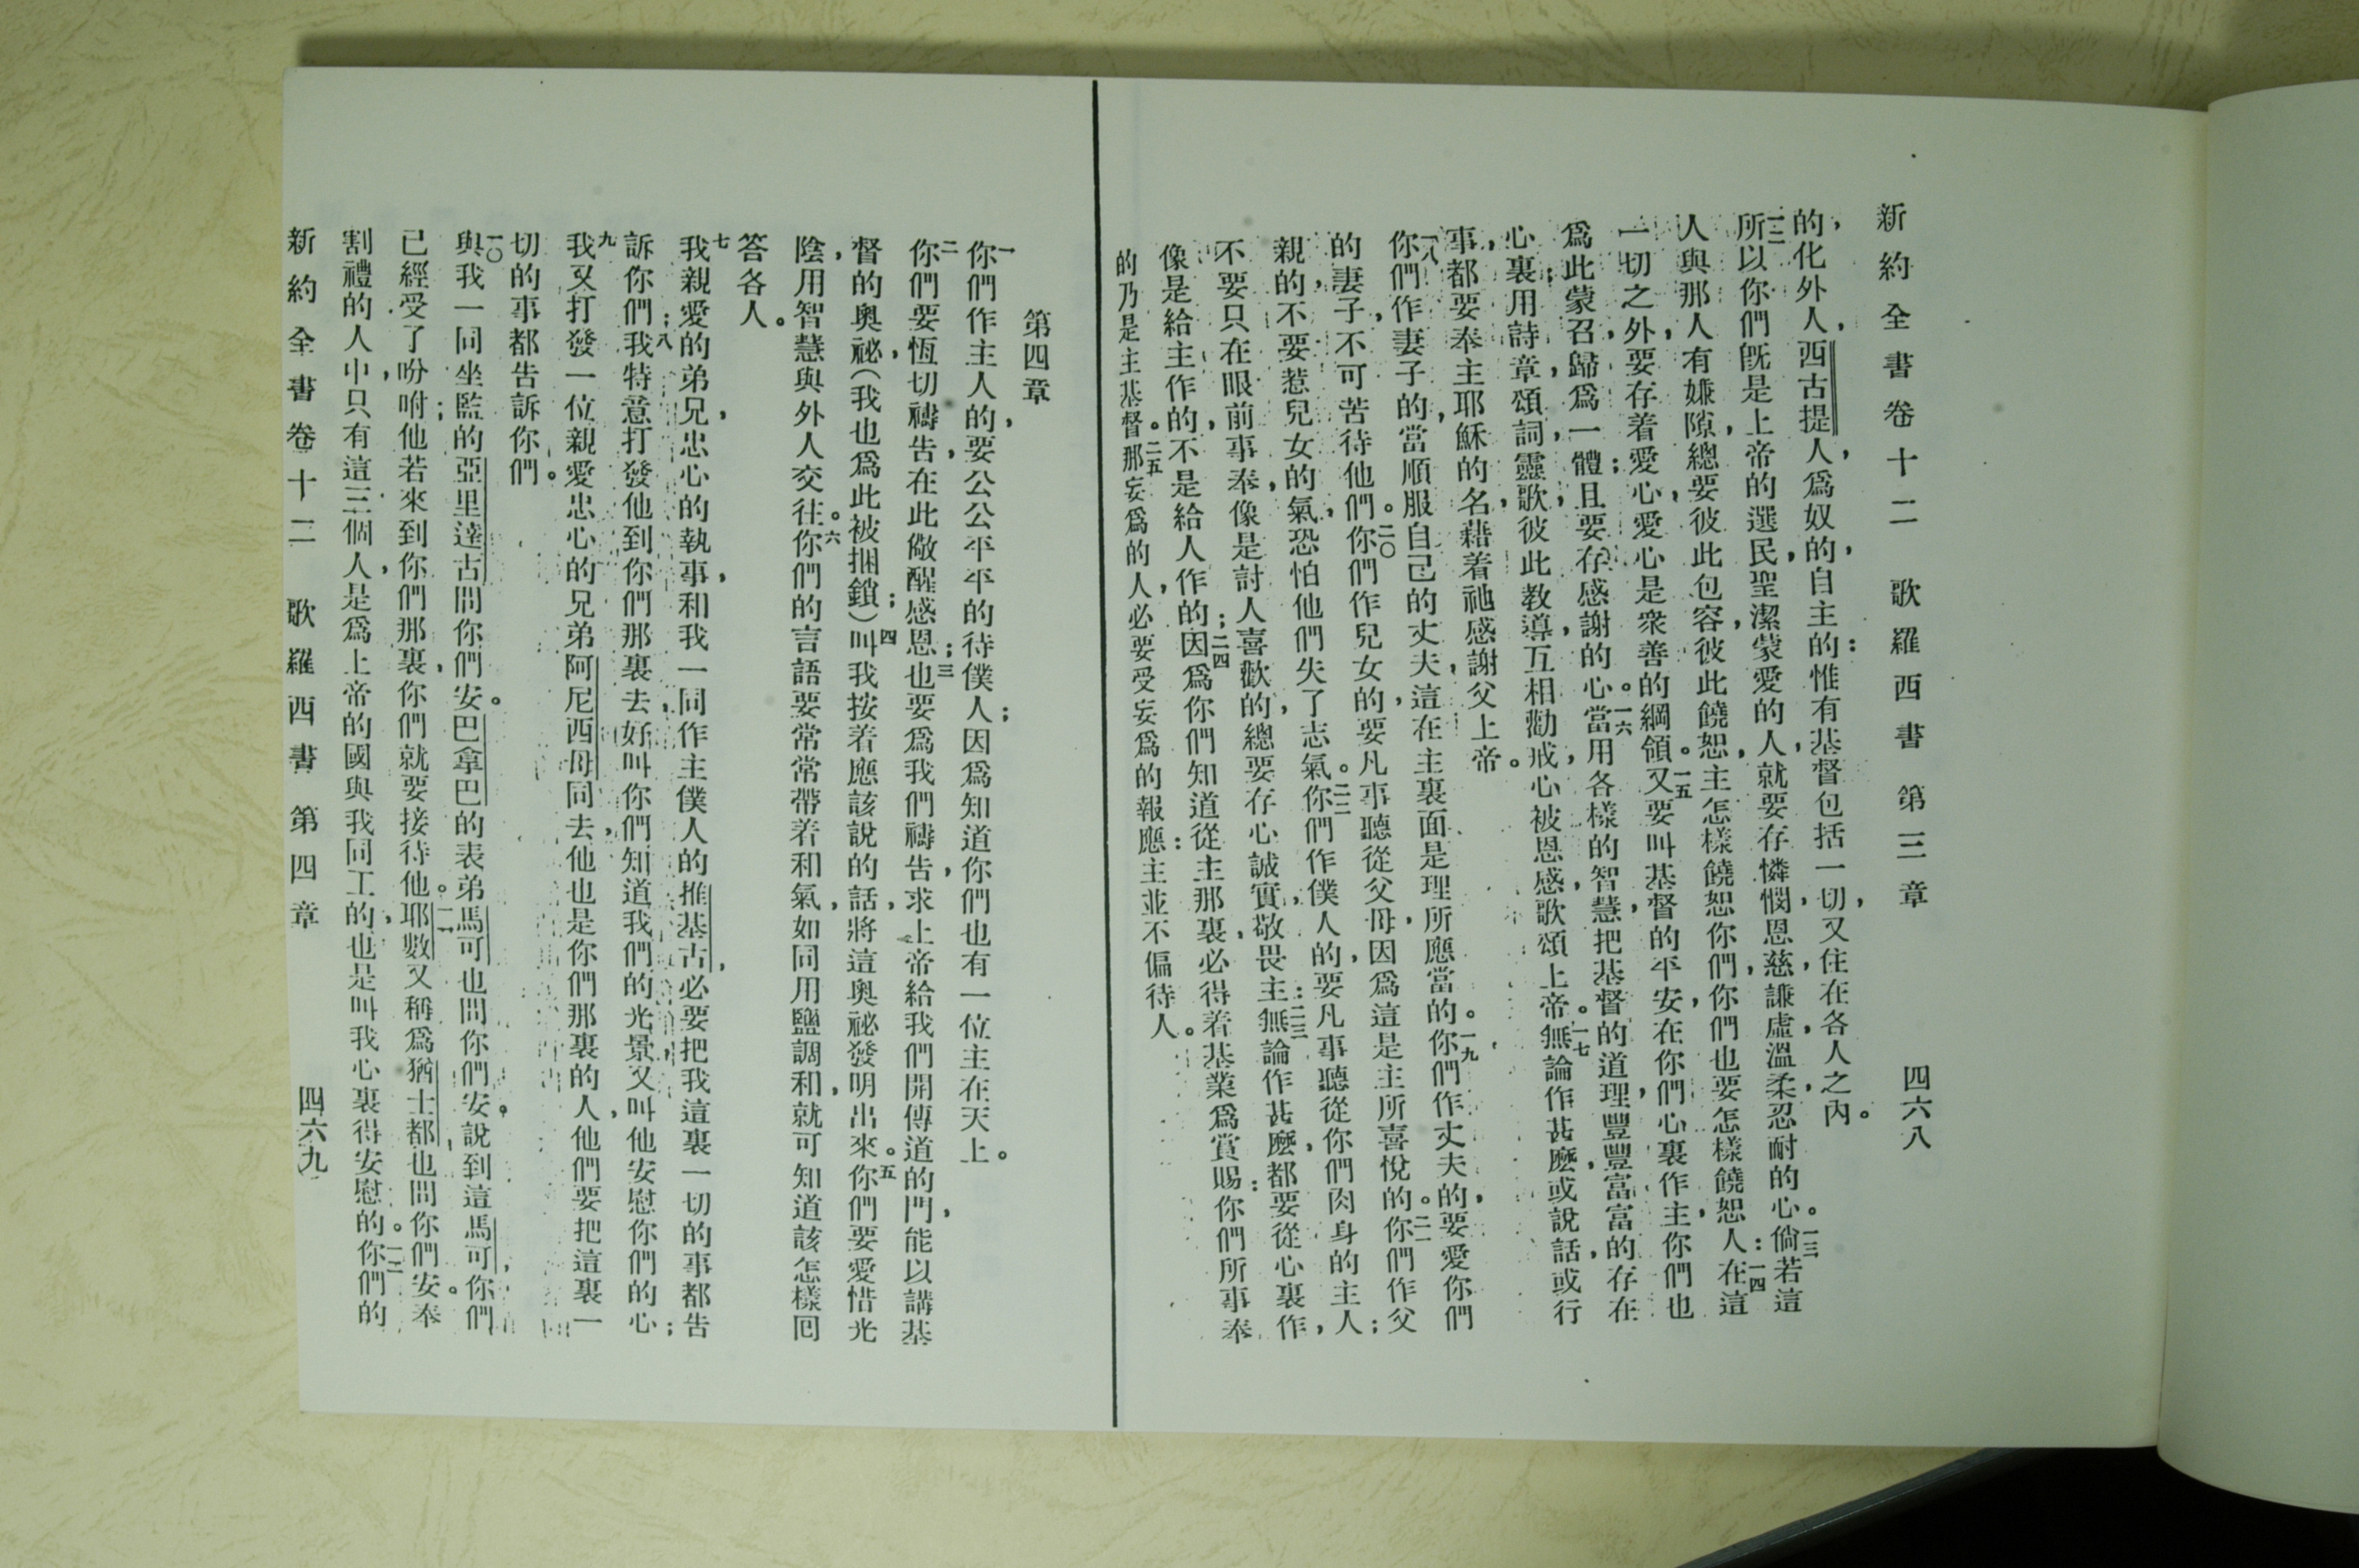 新約全書卷十二　歌羅西書　第三章　四六八
的化外人西古提人爲奴的自主的惟有基督包括一切又住在各人之內。
一二所以你們旣是上帝的選民聖潔蒙愛的人就要存憐憫恩慈謙虛溫柔忍耐的心。一三倘若這
人與那人有嫌隙總要彼此包容彼此饒恕主怎樣饒恕你們你們也要怎樣饒恕人一四在這
一切之外要存着愛心愛心是衆善的綱領。一五又要叫基督的平安在你們心裏作主你們也
爲此蒙召歸爲一體且要存感謝的心。一六當用各樣的智慧把基督的道理豐豐富富的存在
心裏用詩章頌詞靈歌彼此敎導互相勸戒心被恩感歌頌上帝。一七無論作甚麽或說話或行
事都要奉主耶穌的名藉着祂感謝父上帝。
一八你們作妻子的當順服自己的丈夫這在主裏面是理所應當的。一九你們作丈夫的要愛你們
的妻子不可苦待他們。二〇你們作兒女的要凡事聽從父母因爲這是主所喜悅的。二一你們作父
親的不要惹兒女的氣恐怕他們失了志氣。二二你們作僕人的要凡事聽從你們肉身的主人
不要只在眼前事奉像是討人喜歡的總要存心誠實敬畏主二三無論作甚麽都要從心裏作
像是給主作的不是給人作的二四因爲你們知道從主那裏必得着基業爲賞賜你們所事奉
的乃是主基督。二五那妄爲的人必要受妄爲的報應主並不偏待人。
第四章
一你們作主人的要公公平平的待僕人因爲知道你們也有一位主在天上。
二你們要恆切禱告在此儆醒感恩三也要爲我們禱告求上帝給我們開傳道的門能以講基
督的奧祕（我也爲此被捆鎖）四叫我按着應該說的話將這奧祕發明出來。五你們要愛惜光
陰用智慧與外人交往。六你們的言語要常常帶着和氣如同用鹽調和就可知道該怎樣囘
答各人。
七我親愛的弟兄忠心的執事和我一同作主僕人的推基古必要把我這裏一切的事都告
訴你們八我特意打發他到你們那裏去好叫你們知道我們的光景又叫他安慰你們的心
九我又打發一位親愛忠心的兄弟阿尼西母同去他也是你們那裏的人他們要把這裏一
切的事都告訴你們。
一〇與我一同坐監的亞里達古問你們安。巴拿巴的表弟馬可也問你們安說到這馬可你們
已經受了吩咐他若來到你們那裏你們就要接待他。一一耶數又稱爲猶士都也問你們安。奉
割禮的人中只有這三個人是爲上帝的國與我同工的也是叫我心裏得安慰的。一二你們的
新約全書卷十二　歌羅西書　第四章　四六九